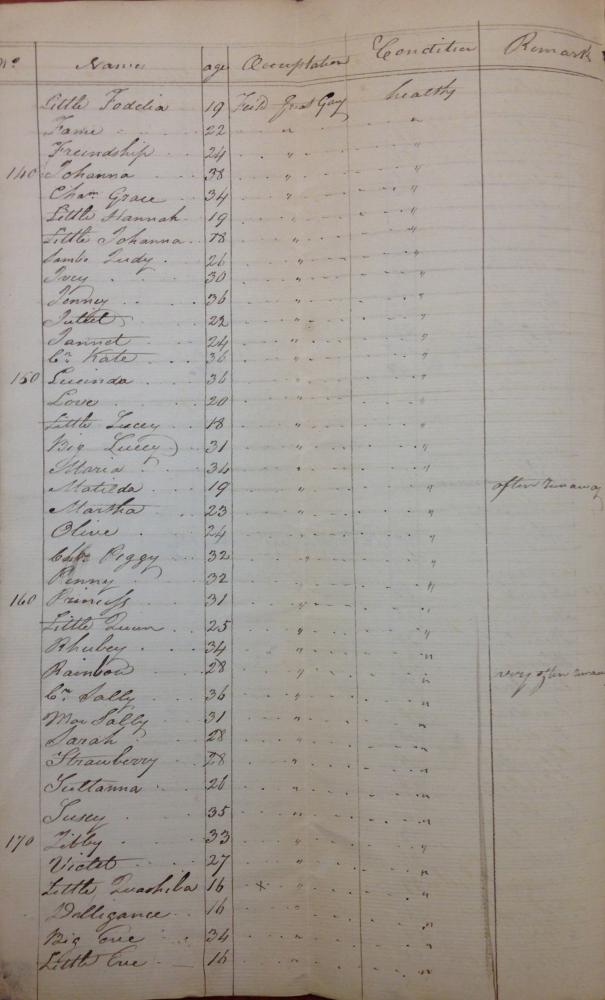 No Names age Occupation Condition Remark
Little Fodelia 19 Field Great Gang healthy
Fame 22 " "
Freindship 24 " "
140 Johanna 38 " "
Cham Grace 34 " "
Little Hannah 19 " "
Little Johanna 18 " "
Sambo Judy 26 " "
Ivey 30 " "
Jenney 36 " "
Juliet 22 " "
Jannet 24 " "
Cr Kate 36 " "
150 Lucinda 36 " "
Love 20 " "
Little Lucey 18 " "
Big Lucey 31 " "
Maria 34 " "
Matilda 19 " " often runaway
Martha 23 " "
Olive 24 " "
Peggy 32 " "
Penny 32 " "
160 Princess 31 " "
Little Queen 25 " "
Rhubey 34 " "
Rainbow 28 " " very often runa
Cr Sally 36 " "
Mor Sally 31 " "
Sarah 28 " "
Strawberry 28 " "
Sultanna 26 " "
Susey 35 " "
170 Tibby 33 " "
Violet 27 " "
Little Quashiba 16 x " "
Dilligance 16 " "
Big Eve 34 " "
Little Eve 16 " "